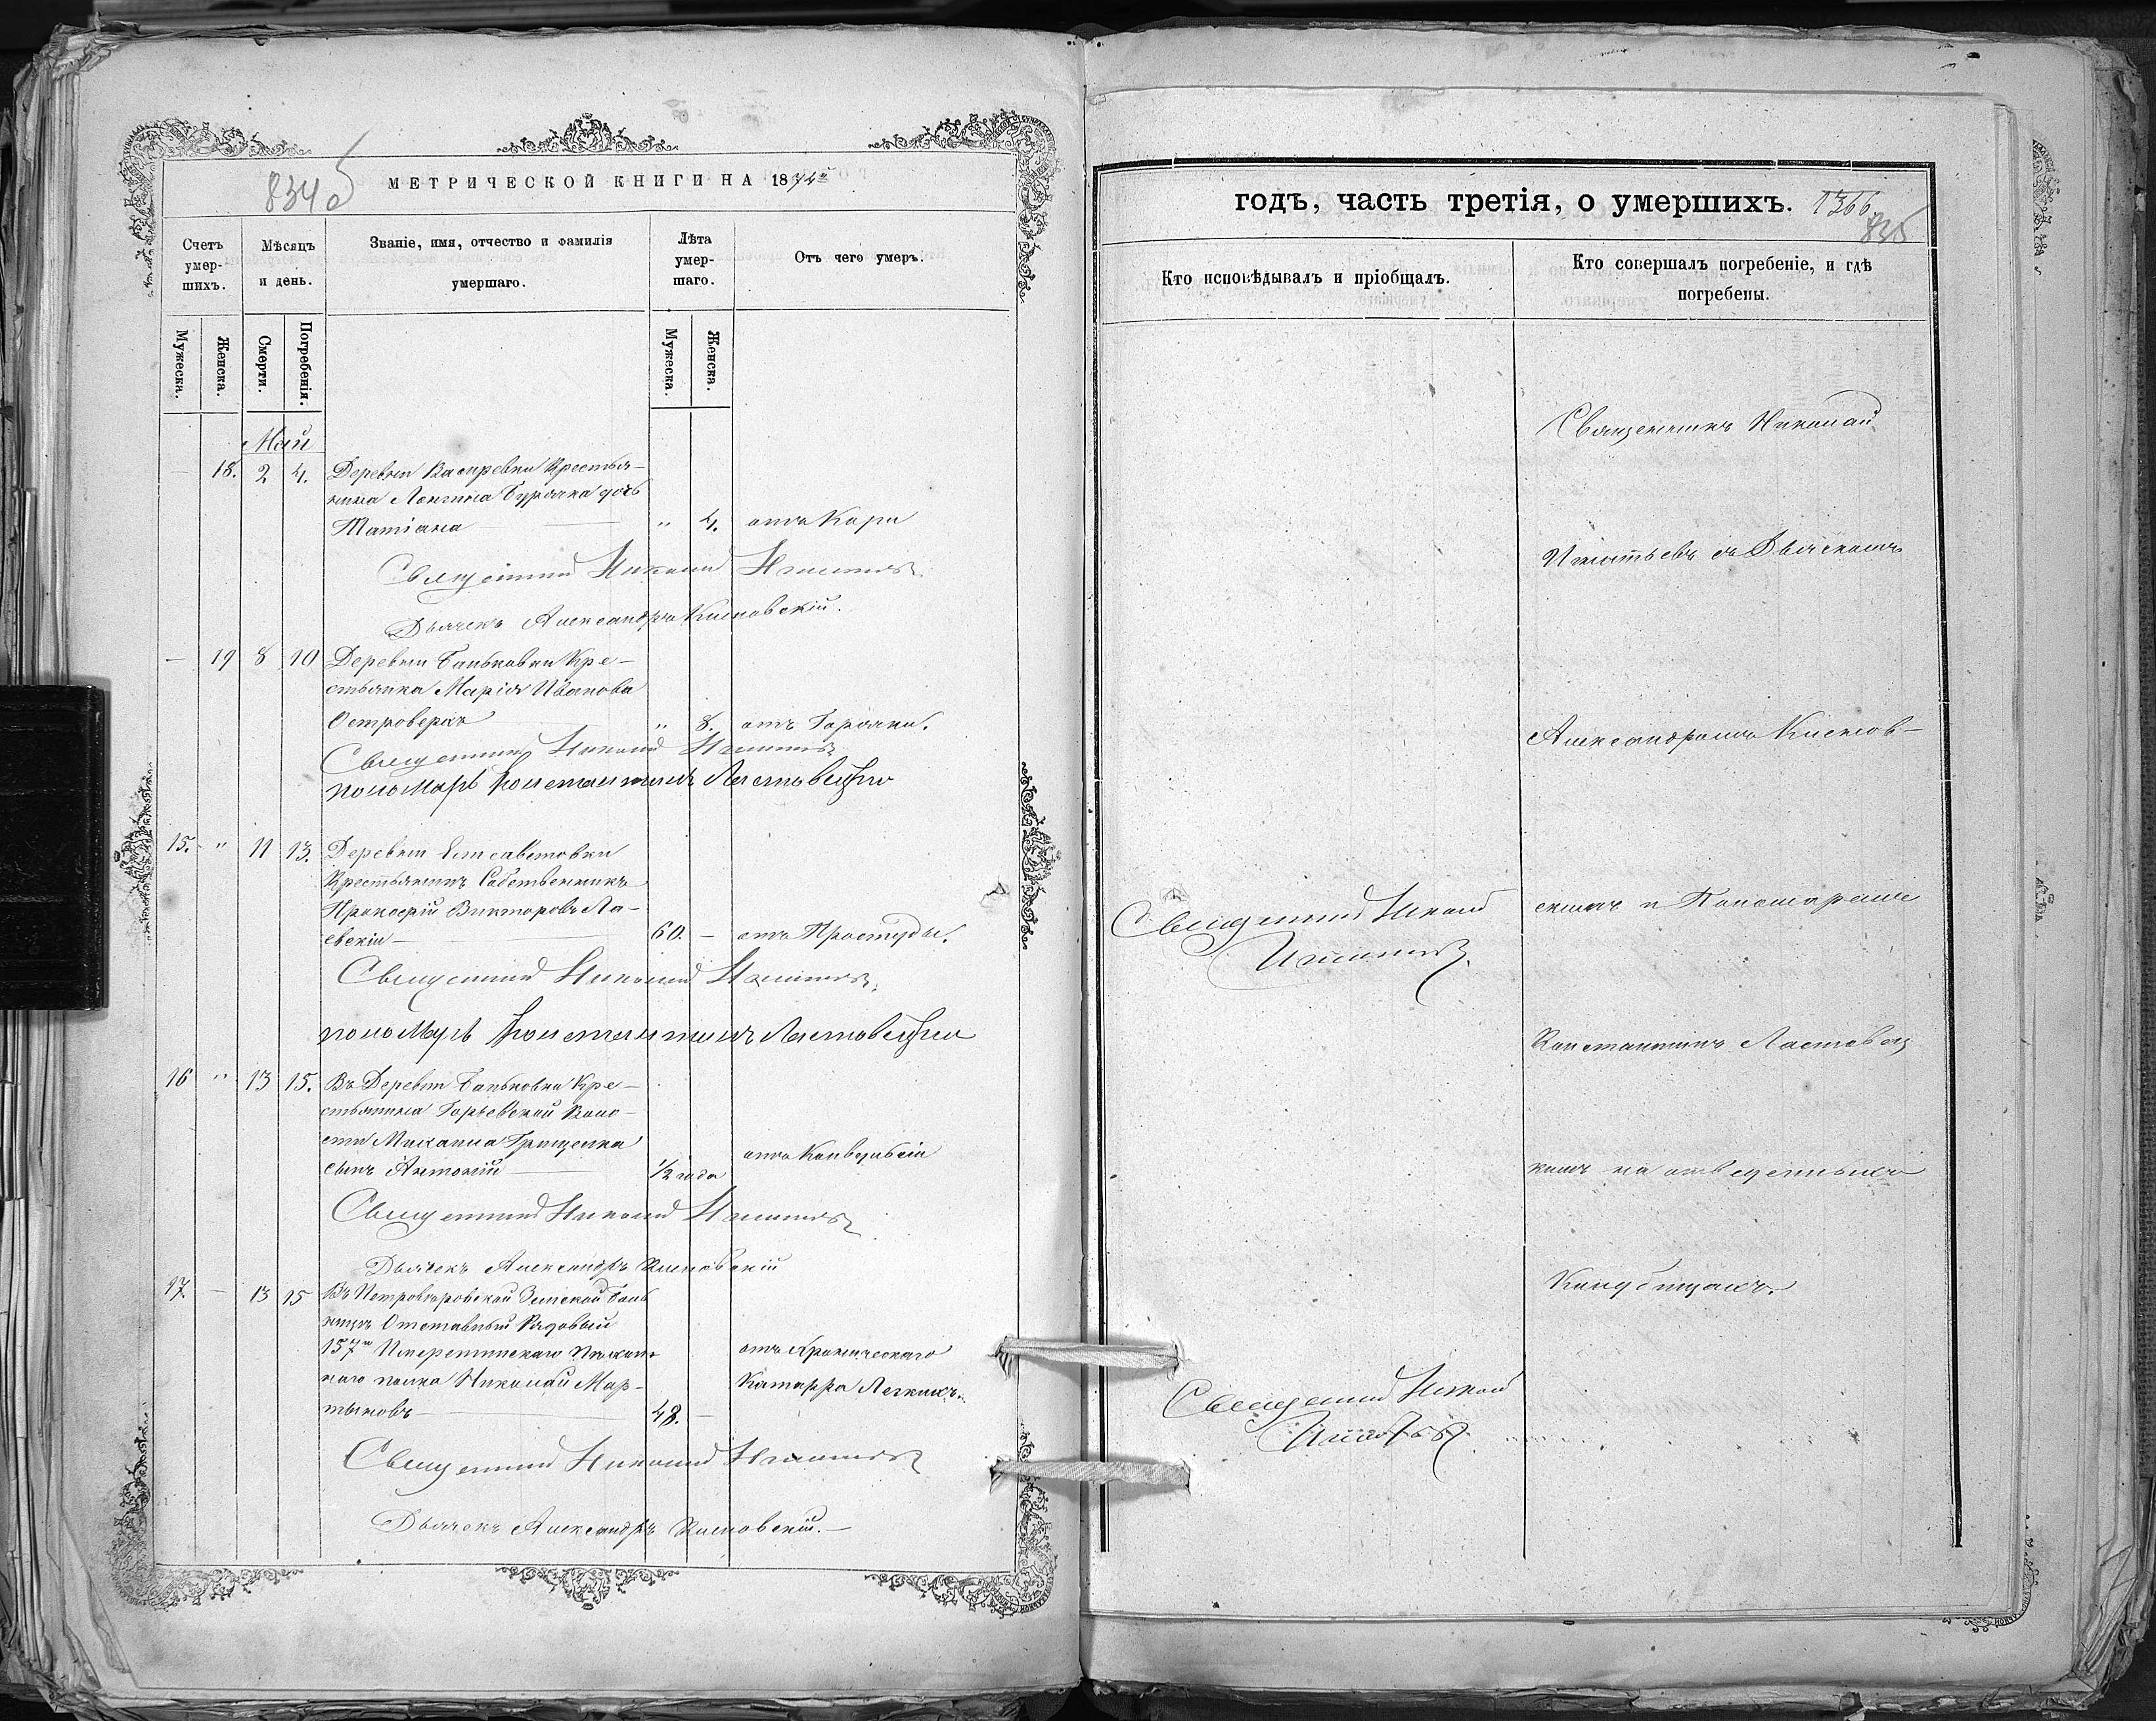 834 об
МЕТРИЧЕСКОЙ КНИГИ НА 1874й
Счетъ умер-шихъ.
Мѣсяцъ и день.
Званіе, имя, отчество и фамилія умершаго.
Лѣта умер-шаго.
Отъ чего умеръ.
Мужеска.
Женска.
Смерти.
Погребенія.
Мужеска.
Женска.
Май
— 18. 2 4. Деревни Крестья-
нина Лонгина Буряка дочь
Татіана „ 4. отъ Кори
Священникъ Николай Игнатьевъ
Дьячекъ Александръ Кисловскій.
— 19 8 10 Деревни Баньковки Кре-
стьянка Марія Иванова
Островерхъ „ 8. отъ Горячки.
Священникъ Николай Игнатьевъ
пономарь Константинъ Ластовецкій
15. „ 11 13. Деревни Елисаветовки
Крестьянинъ Собственникъ
Прокофій Викторовъ Ла-
евскій 60. — отъ Простуды.
Священникъ Николай Игнатьевъ
пономарь Константинъ Ластовецкій
16 „ 13 15. Въ Деревни Баньковки Кре-
стьянина Воло-
сти Михаила Грищенка
сынъ Антоній 1/2 года отъ Конвульсіи
Священникъ Николай Игнатьевъ
Дьячекъ Александръ Кисловскій
17. — 13 15 Въ Земской Боль
ницѣ Отставный Рядовый
157го Имеретинскаго Пѣхот-
наго полка Николай Мар-
тыновъ 48. — отъ Хроническаго
Катарра Легкихъ.
Священникъ Николай Игнатьевъ
Дьячекъ Александръ Кисловскій.
годъ, часть третія, о умершихъ. 1366
835
Кто исповѣдывалъ и пріобщалъ.
Кто совершалъ погребеніе, и гдѣ погребены.
Священникъ Николай
Игнатьевъ съ Дьячкомъ
Александромъ Кислов-
Священникъ Николай
Игнатьевъ.
скимъ и Пономаремъ
Константинъ Ластовец
кимъ на отведенныхъ
Кладбищахъ.
Священникъ Николай
Игнатьевъ.